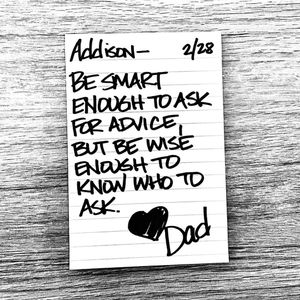 Addison— 2/28
BE SMART
ENOUGH TO ASK
FOR ADVICE,
BUT BE WISE
ENOUGH TO
KNOW WHO TO
ASK.
Dad